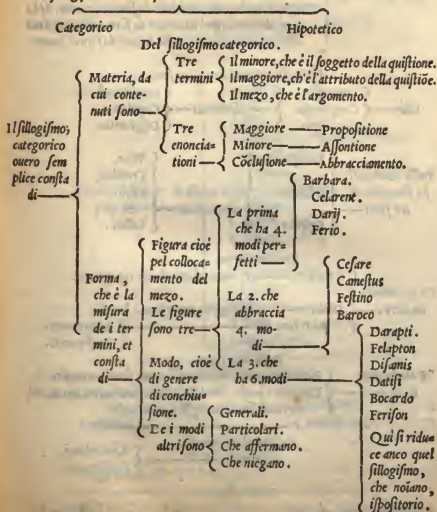 Categorico Hipotetico
Del sillogismo categorico.
Il sillogismo,
categorico
ouero sem
plice consta
di
Materia, da
cui conte-
nuti sono
Tre
termini
Il minore, che è il soggetto della quistione.
Il maggiore, ch'è l'attributo della quistiõe.
Il mezo, che è l'argomento.
Tre
enoncia-
tioni
Maggiore — Propositione
Minore — Assontione
Cõclusione — Abbracciamento.
Forma,
che è la
misura
de i ter
mini, et
consta
di
Figura cioè
pel colloca-
mento del
mezo.
Le figure
sono tre
La prima
che ha 4.
modi per-
fetti
Barbara.
Celarent.
Darij.
Ferio.
La 2. che
abbraccia
4. mo-
di
Cesare
Camestus
Festino
Baroco
La 3. che
ha 6. modi
Darapti.
Felapton
Disamis
Datisi
Bocardo
Ferison
Qui si ridu-
ce anco quel
sillogismo,
che noĩano,
ispositorio.
Modo, cioè
di genere
di conchiu-
sione.
De i modi
altri sono
Generali.
Particolari.
Che affermano.
Che niegano.